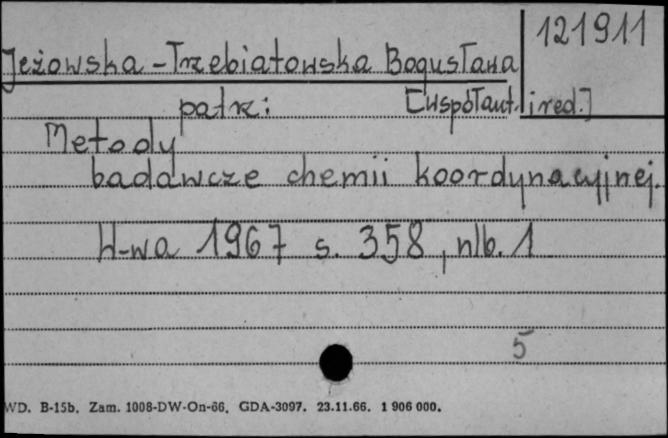 121911
Jeżowska-Trzebiatowska Bogusława
patrz: [współaut. i red.]
Metody
badawcze chemii koordynacyjnej.
W-wa 1967 s. 358, nlb. 1
5
WD. B-15b. Zam. 1008-DW-On-66. GDA-3097. 23.11.66. 1 906 000.